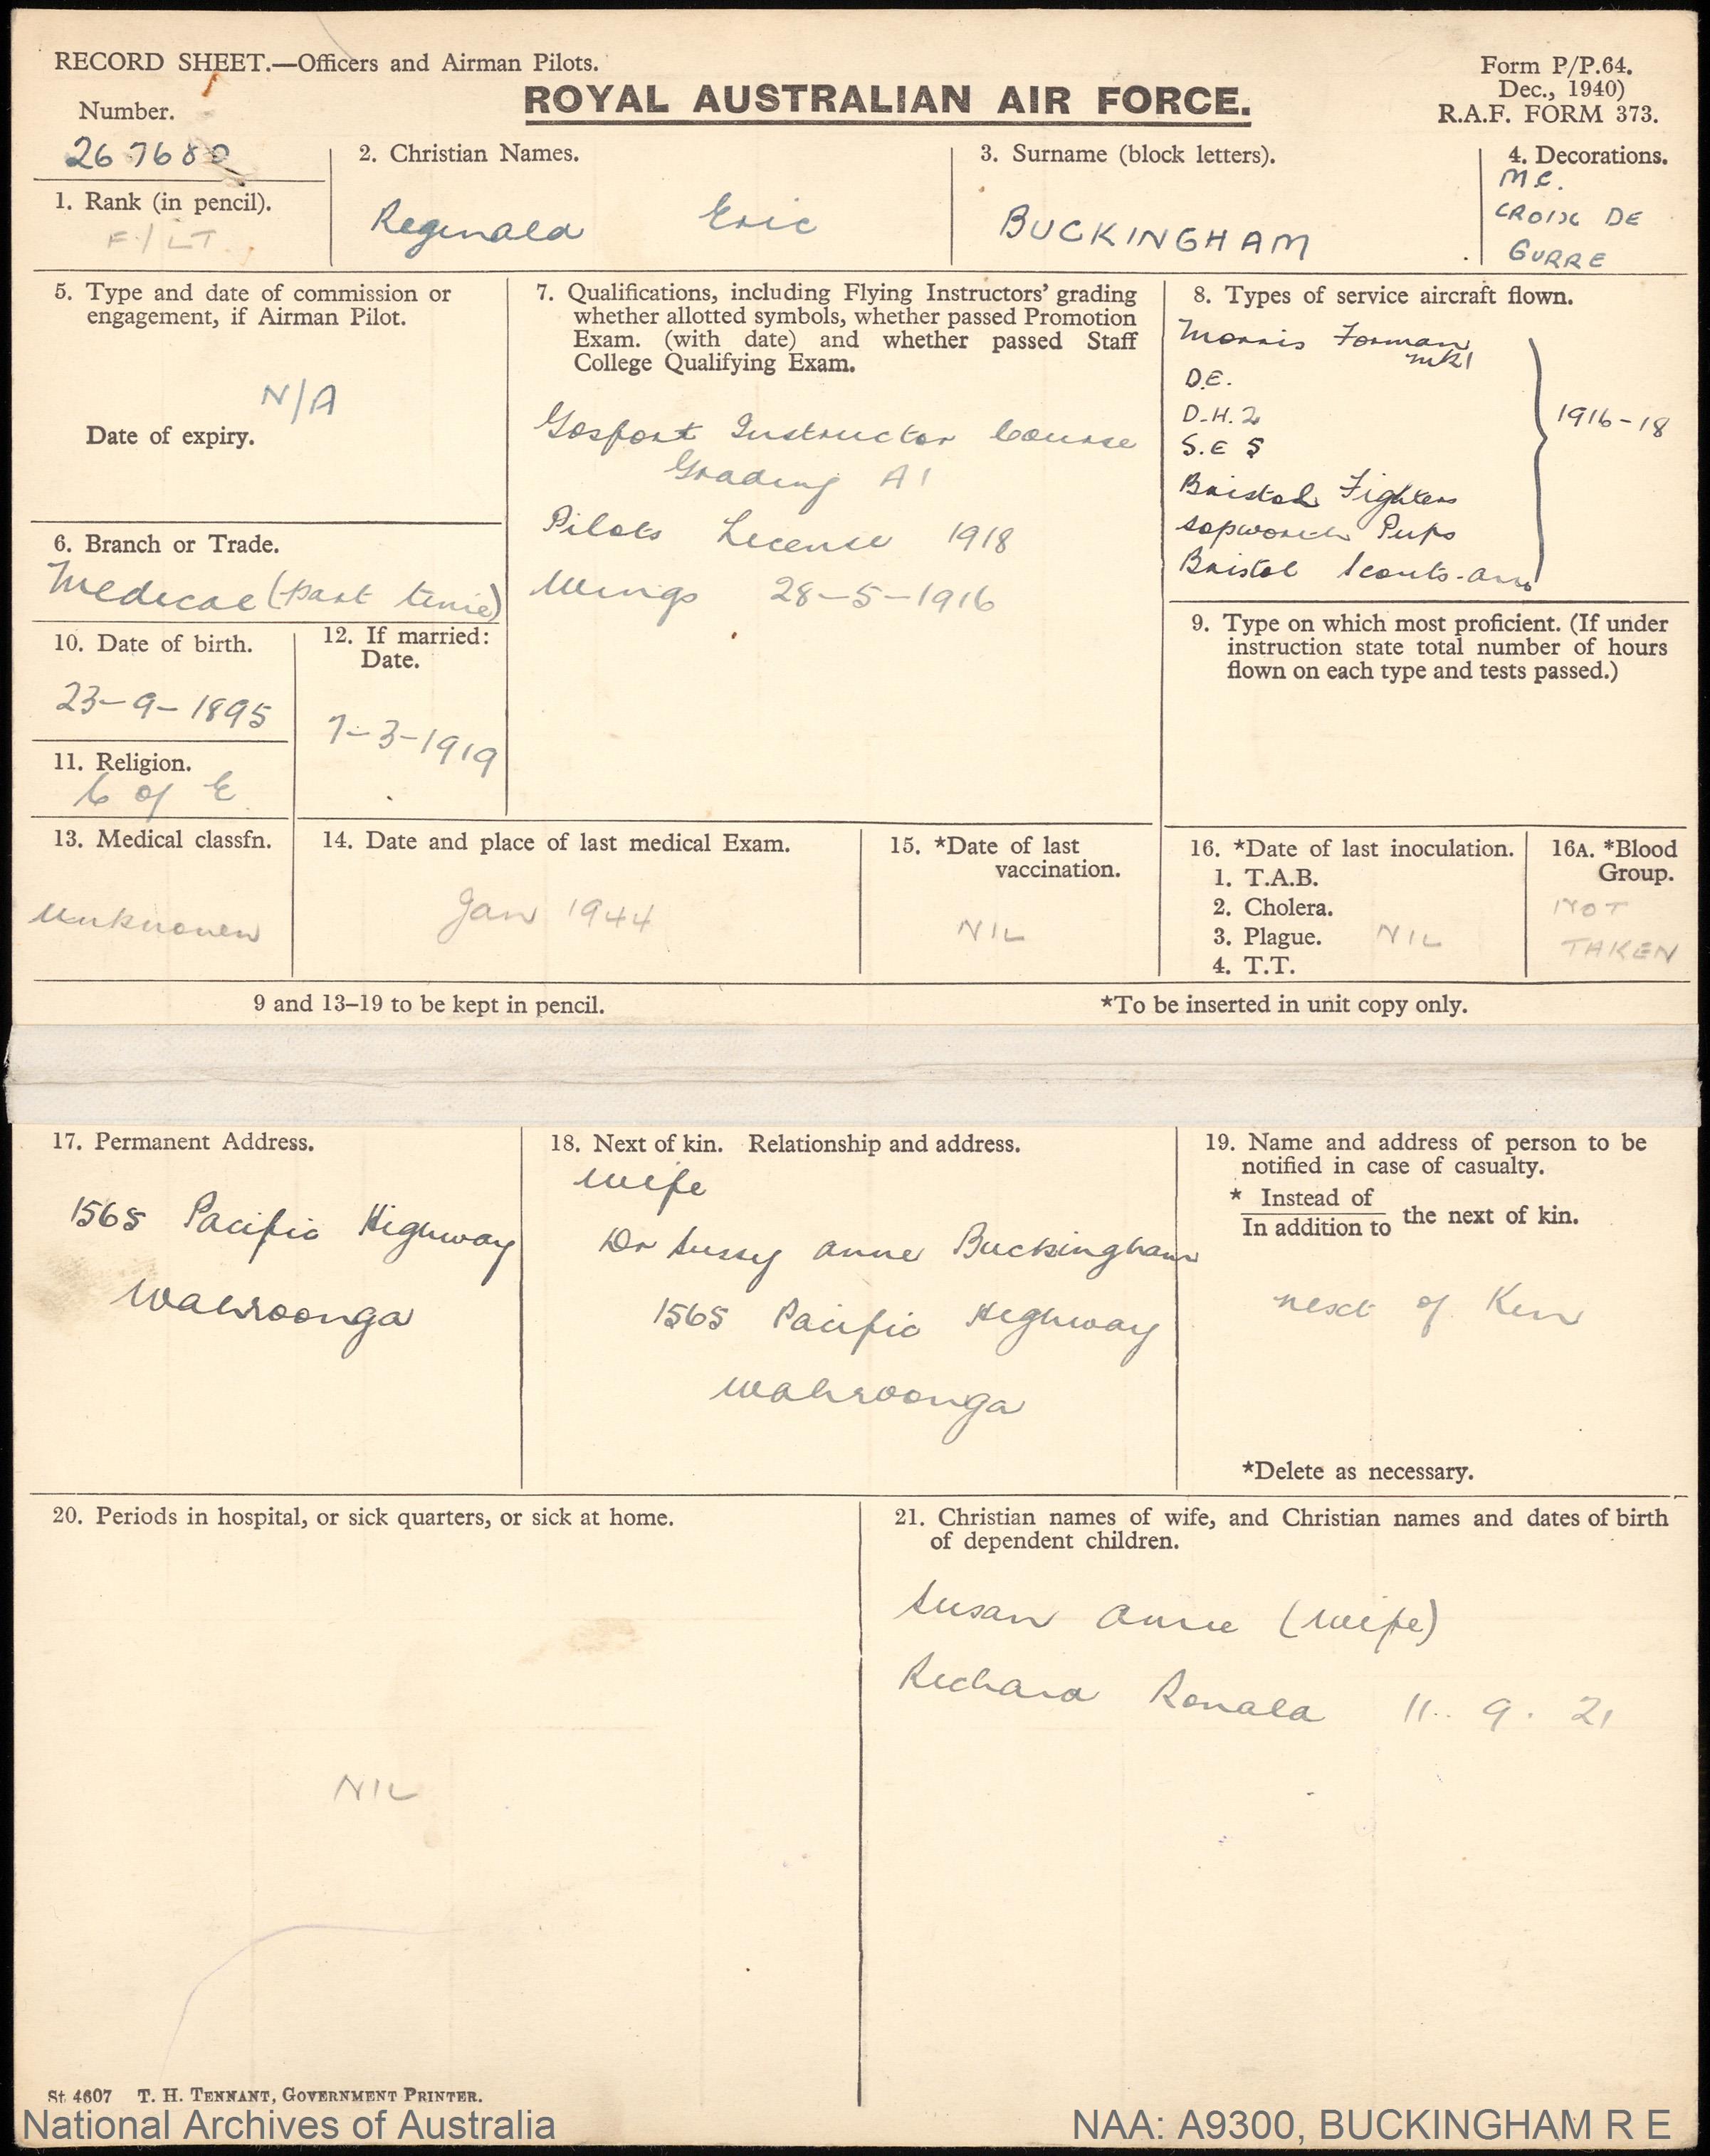 RECORD SHEET.—Officers and Airman Pilots.
Form P/P.64.
Dec., 1940)
R.A.F. FORM 373.
ROYAL AUSTRALIAN AIR FORCE.
Number.
267680
1. Rank (in pencil).
F/LT.
2. Christian Names.
Reginald Eric
3. Surname (block letters).
BUCKINGHAM
4. Decorations.
M.C.
CROIX DE
GURRE
5. Type and date of commission or
engagement, if Airman Pilot.
N/A
Date of expiry.
6. Branch or Trade.
Medical (part time)
7. Qualifications, including Flying Instructors' grading
whether allotted symbols, whether passed Promotion
Exam. (with date) and whether passed Staff
College Qualifying Exam.
Gosport Instructor Course
Grading A1
Pilots License 1918
Wings 28-5-1916
8. Types of service aircraft flown.
Morris Forman
MK1
D.E.
D.H.2
S.E 5
Bristol Fighters
Sopworth Pups
Bristol Scouts
1916-18
9. Type on which most proficient. (If under
instruction state total number of hours
flown on each type and tests passed.)
10. Date of birth.
23-9-1895
11. Religion.
C of E
12. If married:
Date.
7-3-1919
13. Medical classfn.
Unknown
14. Date and place of last medical Exam.
Jan 1944
15. *Date of last
vaccination.
NIL
16. *Date of last inoculation.
1. T.A.B.
2. Cholera.
3. Plague. NIL
4. T.T.
16A. *Blood
Group.
NOT
TAKEN
9 and 13–19 to be kept in pencil.
*To be inserted in unit copy only.
17. Permanent Address.
1565 Pacific Highway
Wahroonga
18. Next of kin. Relationship and address.
Wife
Dr Sussy Anne Buckingham
1565 Pacific Highway
Wahroonga
19. Name and address of person to be
notified in case of casualty.
* Instead of
In addition to the next of kin.
next of Kin
*Delete as necessary.
20. Periods in hospital, or sick quarters, or sick at home.
NIL
21. Christian names of wife, and Christian names and dates of birth
of dependent children.
Susan Anne (Wife)
Richard Ronald 11. 9. 21
St. 4607 T. H. TENNANT, GOVERNMENT PRINTER.
National Archives of Australia
NAA: A9300, BUCKINGHAM R E